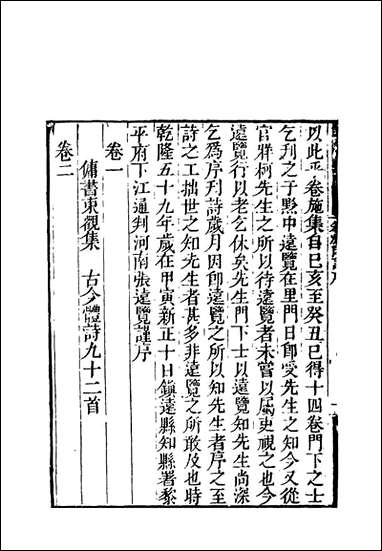 以此乎卷施集自已亥至癸丑已得十四卷門下之士
乞刋之于黔中遠覽在里門日卽受先生之知今又從
官牂柯先生之所以待遠覽者未嘗以屬吏視之也今
遠覽行以老乞休矣先生門下士以遠覽知先生尚深
乞爲序刋詩歲月因卽遠覽之所以知先生者序之至
詩之工拙世之知先生者甚多非遠覽之所敢及也時
乾隆五十九年歲在甲寅新正十日鎭遠縣知縣署黎
平府下江通判河南張遠覽謹序
卷一
傭書東觀集 古今體詩九十二首
卷二